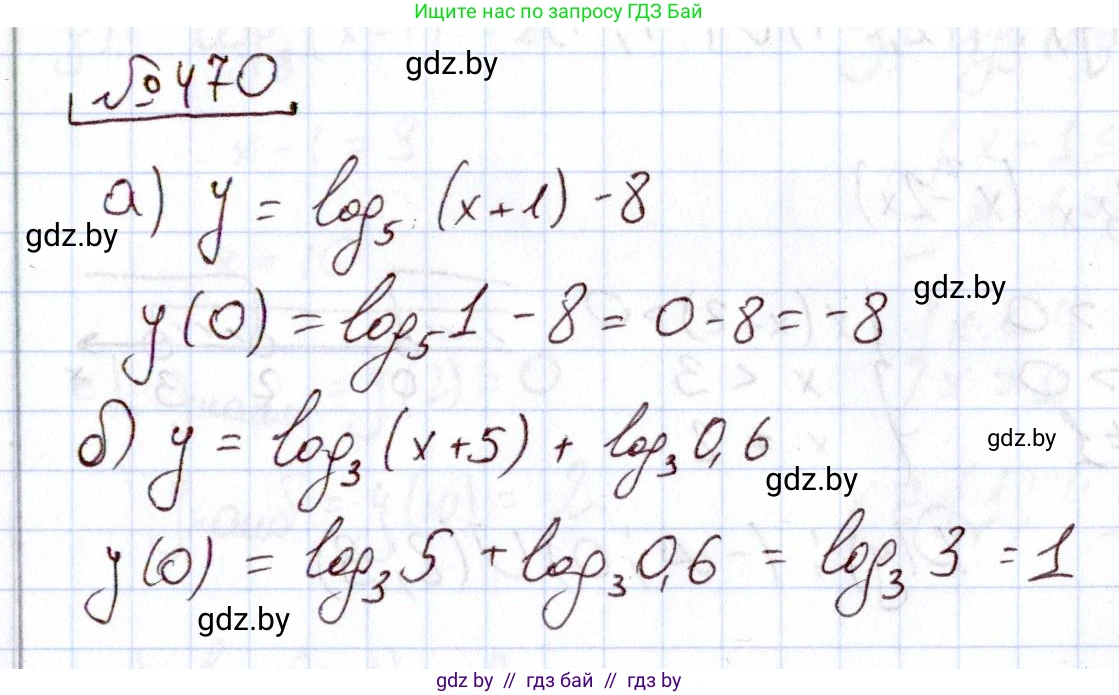 Ищите нас по запросу ГДЗ Бай
№470
gdz.by
а) y = log₅ (x+1) -8
gdz.by
gdz.by
y(0) = log₅1 - 8 = 0-8 = -8
б) y = log₃ (x+5) + log₃ 0,6
gdz.by
gdz.by
y(0) = log₃5 + log₃0,6 = log₃ 3 = 1
gdz.by
gdz.by // гдз бай // гдз by